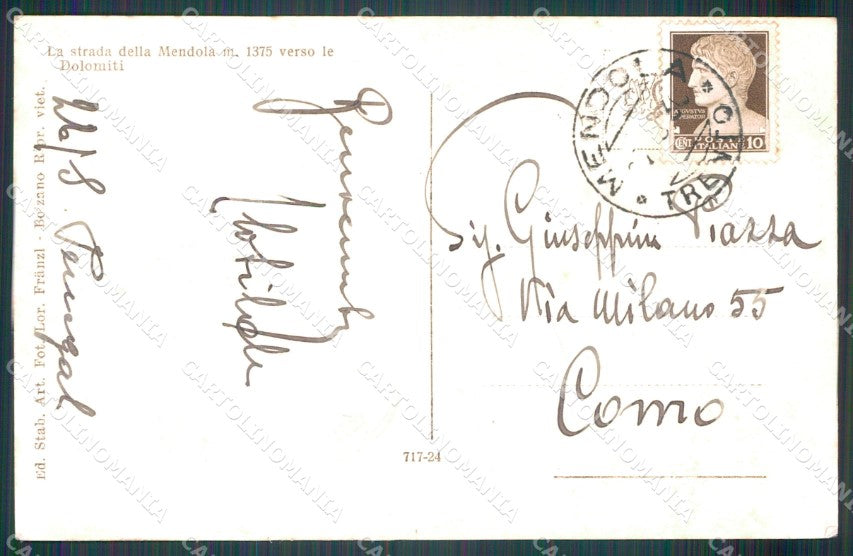 La strada della Mendola m. 1375 verso le
Dolomiti
26/8
Clotilde
Ed. Stab. Art. Fot. Lor. Fränzl - Bolzano Ripr. viet.
717-24
MENDOLA * TRENTO *
AVGVSTVS
IMPERATOR
CENT POSTE ITALIANE 10
Sig. Giuseppina Piazza
Via Milano 55
Como
CARTOLINOMANIA